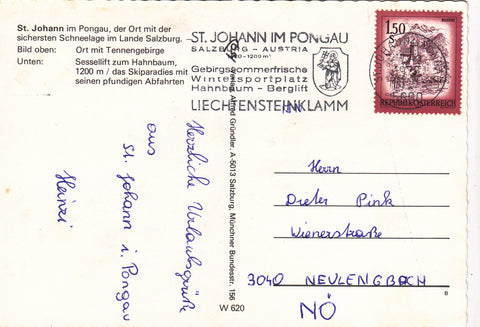 St. Johann im Pongau, der Ort mit der
sichersten Schneelage im Lande Salzburg.
Bild oben: Ort mit Tennengebirge
Unten: Sessellift zum Hahnbaum,
1200 m / das Skiparadies mit
seinen pfundigen Abfahrten
ST. JOHANN IM PONGAU
SALZBURG - AUSTRIA
-1200m
Gebirgssommerfrische
Wintersportplatz
Hahnbaum - Berglift
LIECHTENSTEINKLAMM
1.50
REPUBLIK ÖSTERREICH
Herzliche Urlaubsgrüße
aus
St. Johann i. Pongau
Heinzi
Alfred Gründler, A-5013 Salzburg, Münchner Bundesstr. 156
W 620
Herrn
Dieter Pink
Wienerstraße
3040 NEULENGBACH
NÖ
B